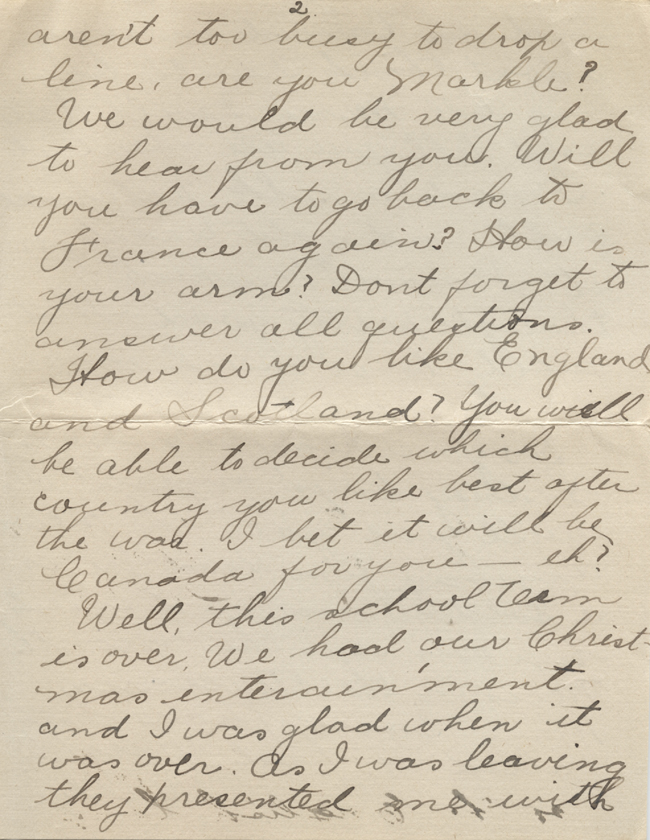 2
aren't too busy to drop a
line, are you Markle?
We would be very glad
to hear from you. Will
you have to go back to
France again? How is
your arm? Dont forget to
answer all questions.
How do you like England
and Scotland? You will
be able to decide which
country you like best after
the war. I bet it will be
Canada for you — eh?
Well, this school term
is over. We had our Christ-
mas enterain'ment.
and I was glad when it
was over. As I was leaving
they presented me with